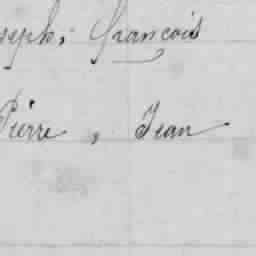 oseph, François
Pierre, Jean